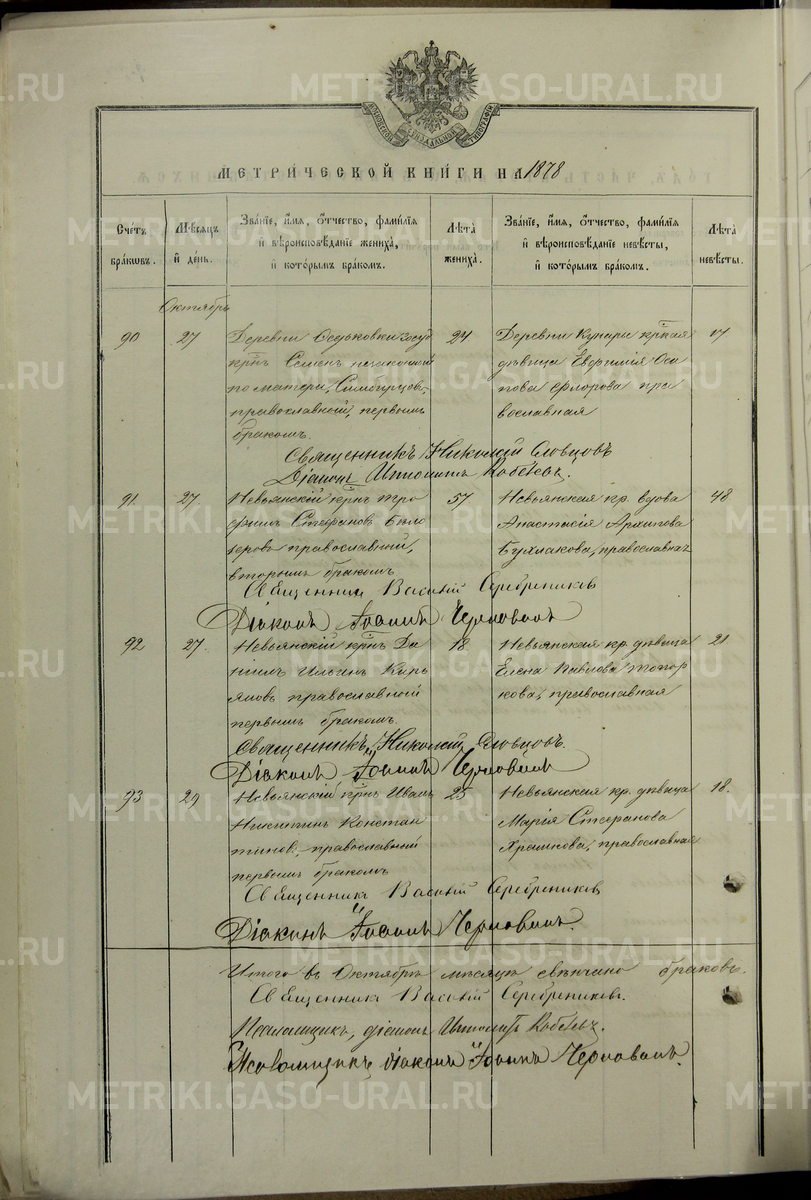 МОСКОВСКОЙ СѴНОДАЛЬНОЙ ТИПОГРАФІИ
МЕТРИ́ЧЕСКОЙ КНИ́ГИ НА 1878
Сче́тъ бра́ковъ.
Мѣ́сяцъ и҆ де́нь.
Зва́нїе, и҆́мя, ѻ҆́тчество, фами́лїя и҆ вѣроисповѣ́данїе жениха̀, и҆ кото́рымъ бра́комъ.
Лѣ́та жениха̀.
Зва́нїе, и҆́мя, ѻ҆́тчество, фами́лїя и҆ вѣроисповѣ́данїе невѣ́сты, и҆ кото́рымъ бра́комъ.
Лѣ́та невѣ́сты.
Октябрь
90
27
Деревни Федьковки госуд
крнъ Семенъ незаконный
по матери, Симбирцовъ,
православный, первымъ
бракомъ.
24
Деревни Кунари кр-ская
дѣвица Евфимія Оси
пова Флорова пра
вославная
17
Священникъ Николай Словцовъ
Діаконъ
91.
27
Невьянскій крнъ Тро
фимъ Стефановъ Бѣло
зеровъ православный,
вторымъ бракомъ
57
Невьянская кр. вдова
Анастасія Архипова
Бухлакова, православная
48.
Священникъ Василій Серебрениковъ
Діаконъ Іоаннъ
92
27.
Невьянскій крнъ Да
ніилъ Ильинъ Кирь
яновъ православный
первымъ бракомъ.
18
Невьянская кр. дѣвица
Елена Павлова Топор
кова, православная
21
Священникъ Николай Словцовъ.
Діаконъ Іоаннъ
93
29
Невьянскій крнъ Иванъ
Никитинъ Констан
тиновъ, православный
первымъ бракомъ
25
Невьянская кр. дѣвица
Марія Стефанова
Храмкова, православная
18.
Священникъ Василій Серебрениковъ
Діаконъ Іоаннъ
Итого въ Октябрѣ мѣсяцѣ свѣнчано браковъ.
Священникъ Василій Серебрениковъ.
Псаломщикъ, діаконъ
Псаломщикъ діаконъ Іоаннъ
METRIKI.GASO-URAL.RU